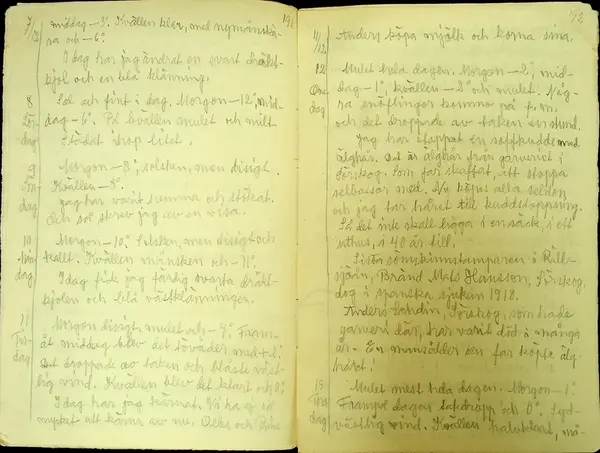 191
7/12 middag -3°. Kvällen klar, med nymånskä-
ra och -6°.
I dag har jag ändrat en svart dräkt-
kjol och en blå klänning.
8 Sol och fint i dag. Morgon -12°, mid-
Lör dag -6°. På kvällen mulet och milt
dag Städat ihop litet.
9 Morgon -8°, solsken, men disigt.
Sön Kvällen -8°.
dag Jag har varit hemma och stökat.
Och så skrev jag av en visa.
10 Morgon -10°. Solsken, men disigt och
Mån kallt. Kvällen månsken och -11°.
dag I dag fick jag färdig svarta dräkt-
kjolen och blå västklänningen.
11 Morgon disigt, mulet och -7°. Fram-
Tis åt middag blev det töväder med +2°.
dag Det droppade av taken och blåste väst-
lig vind. Kvällen blev det klart och 0°.
I dag har jag kärnat. Vi ha ej så
mycket att kärna av nu. Olles och
192
11/12 Anders köpa mjölk och korna sina.
12 Mulet hela dagen. Morgon -2°, mid-
Ons dag -1°, kvällen -2° och mulet. Någ-
dag ra snöflingor kommo på f.m.
och det droppade av taken en stund.
Jag har stoppat en soffkudde med
älghår. Det är älghår från garveriet i
Lörskog. Som far skaffat, att stoppa
selbossor med. Nu köpes alla seldon
och jag tar håret till kuddstoppning.
Så det inte skall ligga i en säck, i ett
uthus, i 40 år till.
Sista sämskinnstamparen i Räll-
sjön, Bränd Mats Hansson, Lörskog,
dog i spanska sjukan 1918.
Anders Lohdin, Lörskog, som hade
garveri där, har varit död i många
år. En mansålder sen far köpte älg-
håret!
13 Mulet mest hela dagen. Morgon -1°.
Tors Frampå dagen takdropp och 0°. Syd-
dag västlig vind. Kvällen halvklart, må-